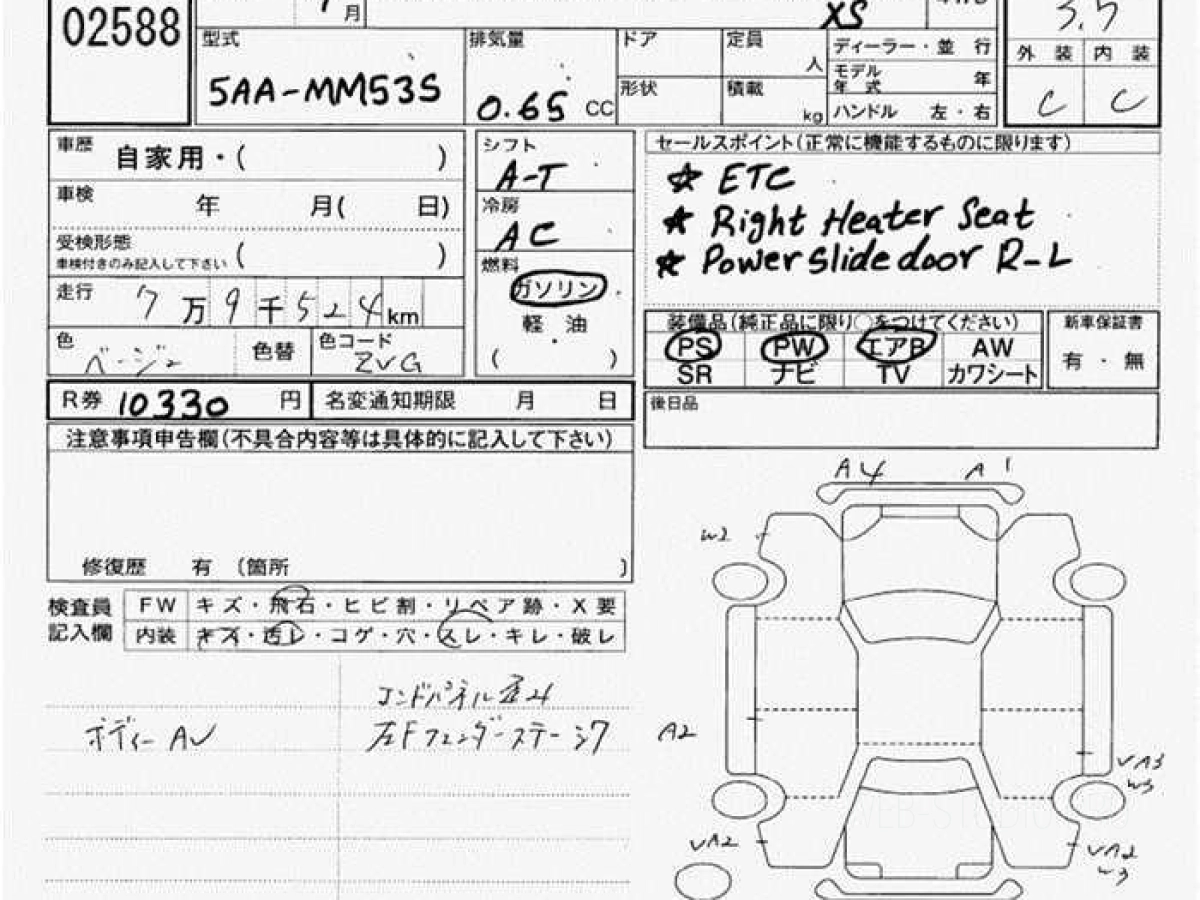 02588
月
XS
3.5
型式
5AA-MM53S
排気量
0.65 CC
ドア
定員
人
形状
積載
kg
ディーラー・並 行
モデル年式 年
ハンドル 左・右
外装 内装
C C
車歴 自家用・( )
車検 年 月( 日)
受検形態
車検付きのみ記入して下さい ( )
走行 7万9千524km
色 ベージュ 色替
色コード ZVG
シフト
A-T
冷房
AC
燃料
ガソリン
軽油
( )
セールスポイント(正常に機能するものに限ります)
☆ ETC
★ Right Heater Seat
★ Power slide door R-L
装備品(純正品に限り○をつけてください)
PS PW エアB AW
SR ナビ TV カワシート
新車保証書
有・無
R券 10330 円
名変通知期限 月 日
後日品
注意事項申告欄(不具合内容等は具体的に記入して下さい)
修復歴 有 (箇所 )
検査員記入欄
FW キズ・飛石・ヒビ割・リペア跡・X要
内装 キズ・汚レ・コゲ・穴・スレ・キレ・破レ
ボディー AU
エンドパネル
左Fフェンダーステー
A4 A1
W2
A2
VA3
W3
VA2
VA2
W3